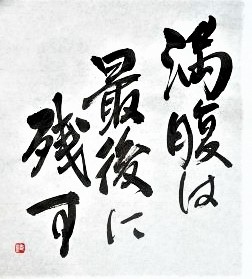 満腹は
最後に
残す